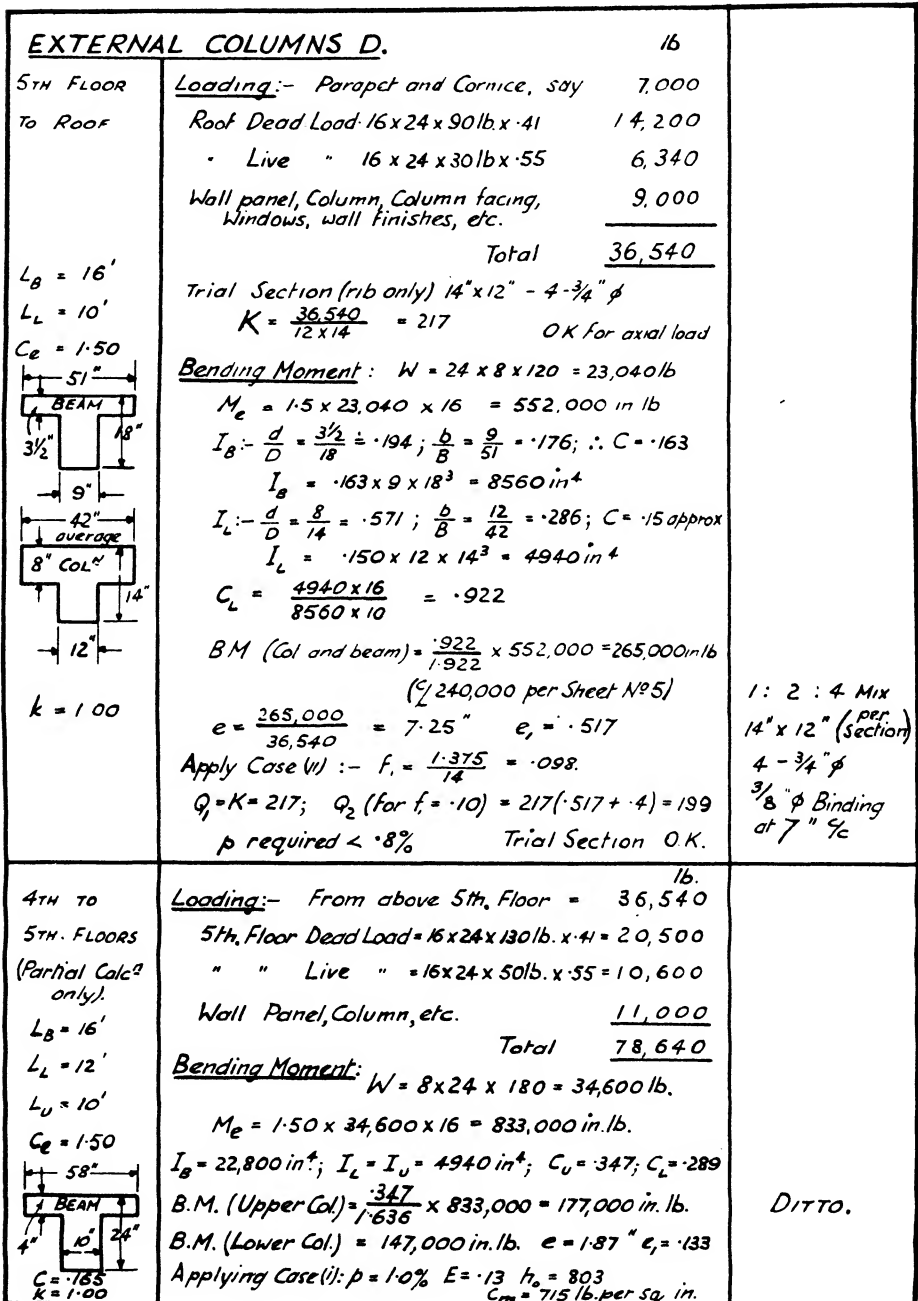 EXTERNAL COLUMNS D. lb
5TH FLOOR
TO ROOF
Loading:- Parapet and Cornice, say 7,000
Roof Dead Load. 16 x 24 x 90 lb. x ·41 14,200
" Live " 16 x 24 x 30 lb x ·55 6,340
Wall panel, Column, Column facing, 9,000
Windows, wall finishes, etc.
Total 36,540
L_B = 16'
L_L = 10'
C_e = 1·50
51"
BEAM
3½"
18"
9"
42"
average
8" COLN
14"
12"
k = 1 00
Trial Section (rib only) 14" x 12" - 4 - ¾" φ
K = 36,540 / 12 x 14 = 217 OK for axial load
Bending Moment: W = 24 x 8 x 120 = 23,040 lb
M_e = 1·5 x 23,040 x 16 = 552,000 in lb
I_B:- d/D = 3½/18 ≐ ·194; b/B = 9/51 = ·176; ∴ C = ·163
I_B = ·163 x 9 x 18³ = 8560 in⁴
I_L:- d/D = 8/14 = ·571; b/B = 12/42 = ·286; C = ·15 approx
I_L = ·150 x 12 x 14³ = 4940 in⁴
C_L = 4940 x 16 / 8560 x 10 = ·922
BM (Col and beam) = ·922/1·922 x 552,000 = 265,000 in lb
(c/f 240,000 per Sheet Nº 5)
e = 265,000 / 36,540 = 7·25" e₁ = ·517
Apply Case (ii) :- f₁ = 1·375/14 = ·098.
Q₁ = K = 217; Q₂ (for f₁ = ·10) = 217(·517 + ·4) = 199
p required < ·8% Trial Section O.K.
1 : 2 : 4 MIX
14" x 12" (per section)
4 - ¾" φ
⅜" φ Binding
at 7" c/c
4TH TO
5TH. FLOORS
(Partial Calcn
only).
L_B = 16'
L_L = 12'
L_U = 10'
C_e = 1·50
58"
BEAM
4"
10"
24"
C = ·165
K = 1·00
lb.
Loading:- From above 5th. Floor = 36,540
5th. Floor Dead Load = 16 x 24 x 130 lb. x ·41 = 20,500
" " Live " = 16 x 24 x 50 lb. x ·55 = 10,600
Wall Panel, Column, etc. 11,000
Total 78,640
Bending Moment:
W = 8 x 24 x 180 = 34,600 lb.
M_e = 1·50 x 34,600 x 16 = 833,000 in. lb.
I_B = 22,800 in⁴; I_L = I_U = 4940 in⁴; C_U = ·347; C_L = ·289
B.M. (Upper Col.) = ·347/1·636 x 833,000 = 177,000 in. lb.
B.M. (Lower Col.) = 147,000 in. lb. e = 1·87" e₁ = ·133
Applying Case (i): p = 1·0% E = ·13 h₀ = 803
C_m = 715 lb. per sq in.
DITTO.